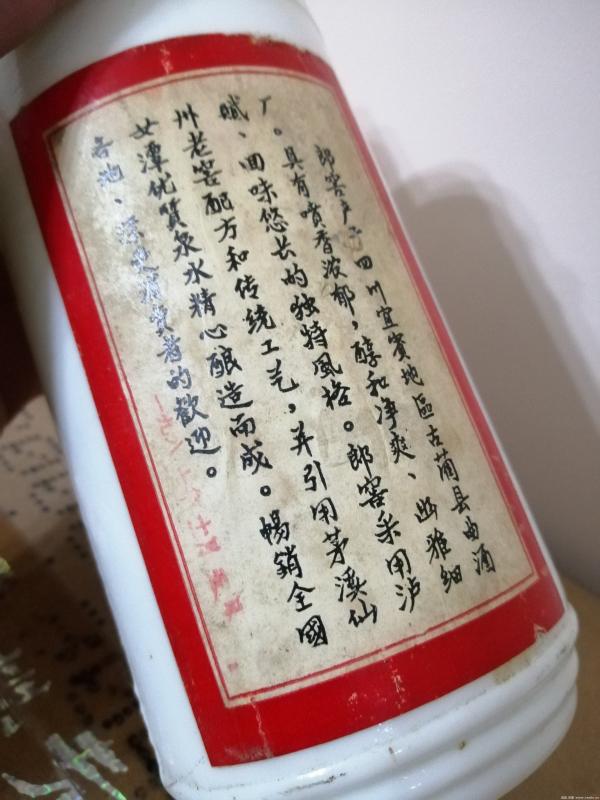 郎窖产于四川宜賓地區古蔺县曲酒
厂。具有喷香浓郁,醇和净爽、幽雅细
腻、回味悠长的独特风格。郎窖采用泸
州老窖配方和传统工艺,并引用茅溪仙
女潭优質泉水精心酿造而成。暢銷全國
各地、深受消費者的歡迎。